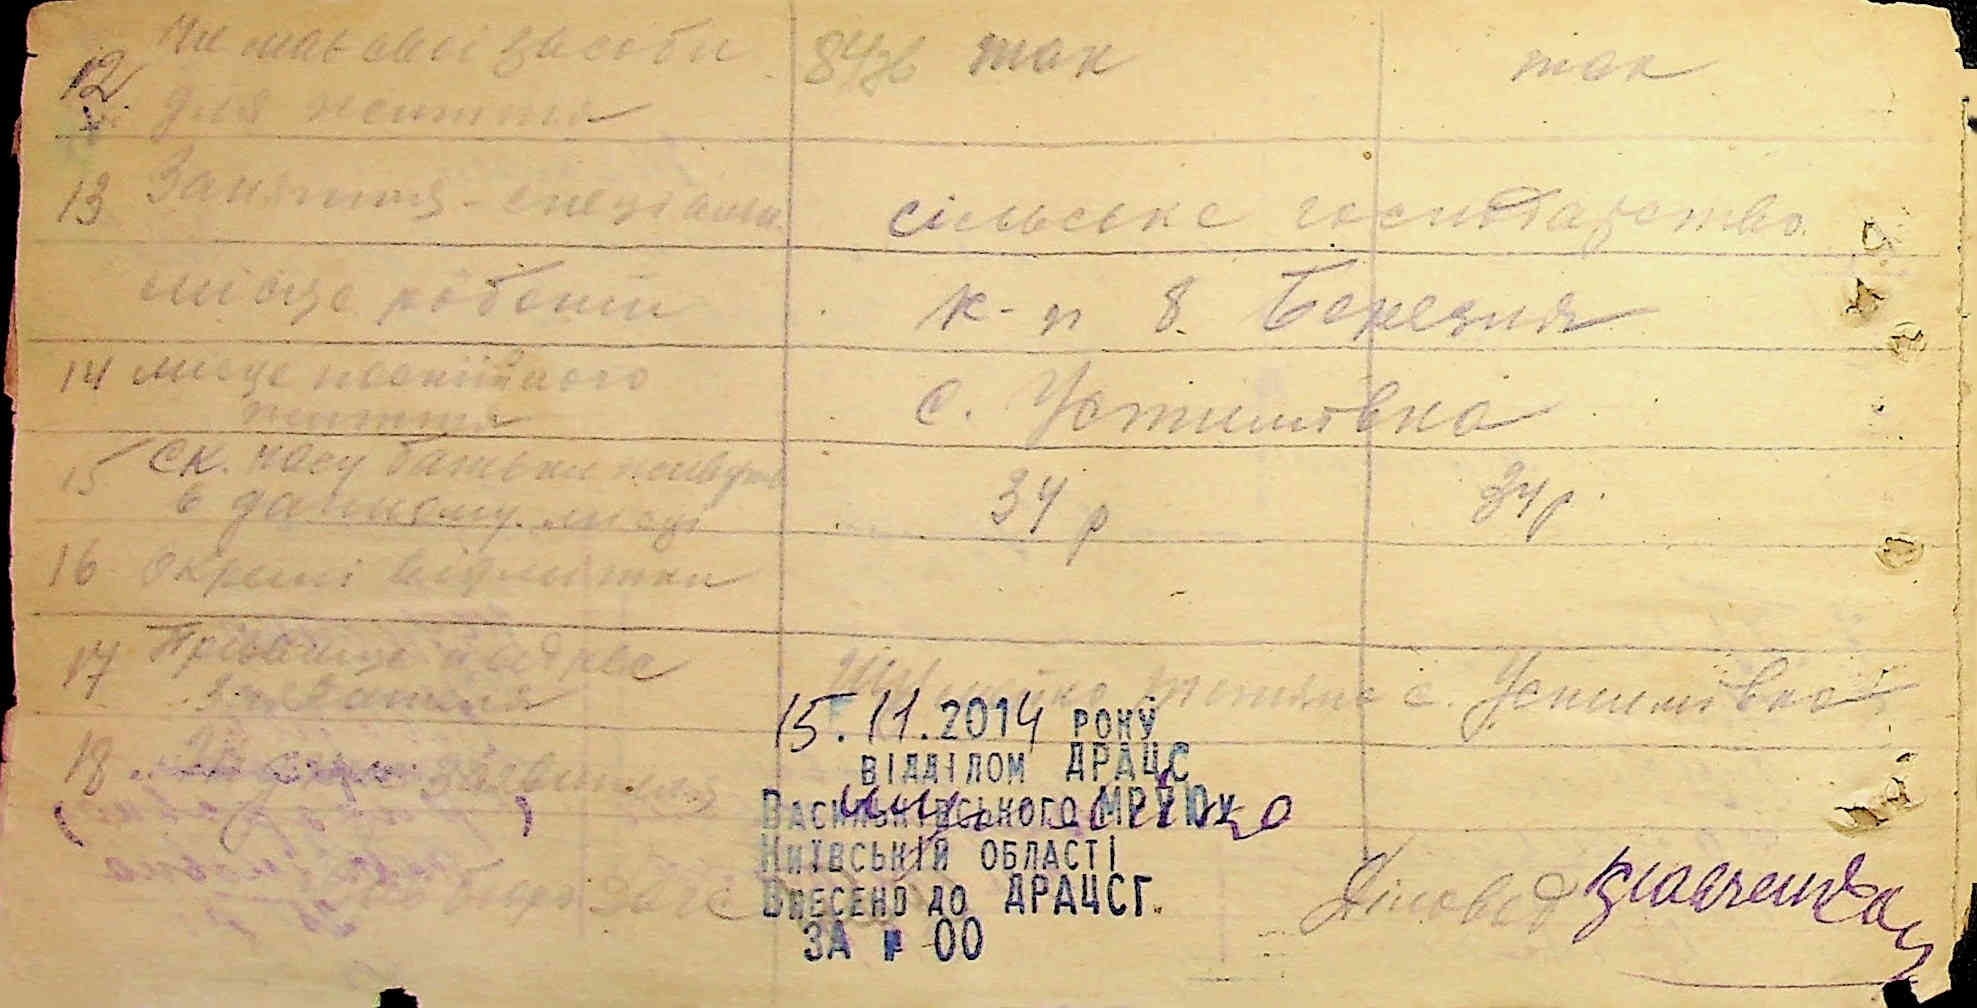 12 Чи має свої засоби так так
для життя
13 Заняття - спеціальн. сільське господарство
місце роботи к-п 8 Березня
14 місце постійного с. Устимівка
життя
15 ск. часу батьки живуть 34 р 34 р.
в данному місці
16 окремі відмітки
17 Прізвище й адреса с. Устимівка
заявателя
18 заявителя
15.11.2014 РОКУ
ВІДДІЛОМ ДРАЦС
ВАСИЛЬКІВСЬКОГО МРУЮ У
КИЇВСЬКІЙ ОБЛАСТІ
ВНЕСЕНО ДО ДРАЦСГ.
ЗА № 00
Діловод